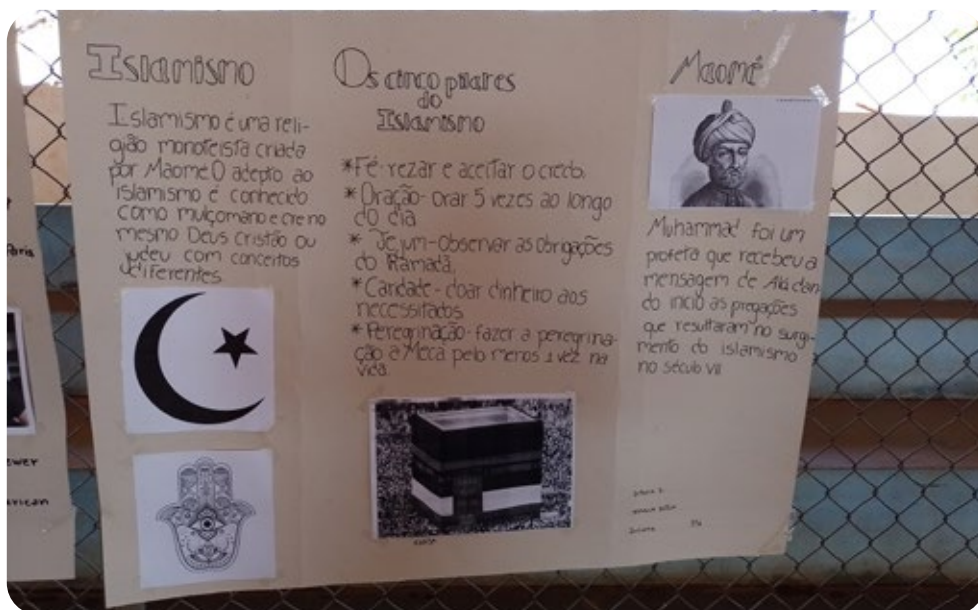 Islamismo
Islamismo é uma reli-
gião monoteista criada
por Maomé O adepto ao
islamismo é conhecido
como mulçomano e cre no
mesmo Deus cristão ou
judeu com conceitos
diferentes
Os cinco pilares
do
Islamismo
*Fé- rezar e aceitar o credo.
*Oração- orar 5 vezes ao longo
do dia
* Jejum-observar as obrigações
do Ramadã.
*Caridade- doar dinheiro aos
necessitados
*Peregrinação- fazer a peregrina-
ção a Meca pelo menos 1 vez na
vida.
Maomé
Muhammad foi um
profeta que recebeu a
mensagem de Alá dan-
do inicio as pregações
que resultaram no surgi-
mento do islamismo
no século VII